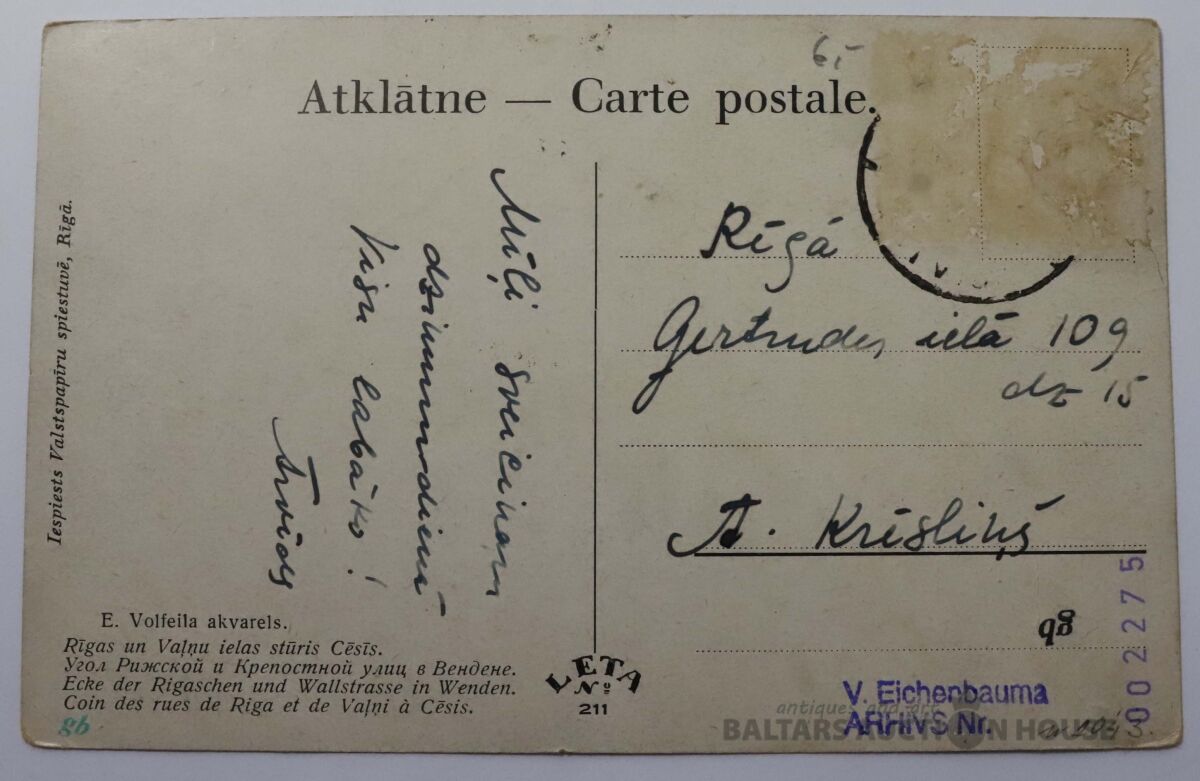 65
Atklātne — Carte postale.
Iespiests Valstspapīru spiestuvē, Rīgā.
Mīļi sveicinam
dzimumdienā
Visu labāko!
Arvids
Rīgā
Gertrudes ielā 109
dz 15
A. Krēsliņš
E. Volfeila akvarels.
Rīgas un Vaļņu ielas stūris Cēsīs.
Угол Рижской и Крепостной улиц в Вендене.
Ecke der Rigaschen und Wallstrasse in Wenden.
Coin des rues de Riga et de Vaļņi à Cēsis.
gb
LETA
No
211
V. Eichenbauma
ARHIVS Nr.
002275
antiques and art
BALTARS AUCTION HOUSE